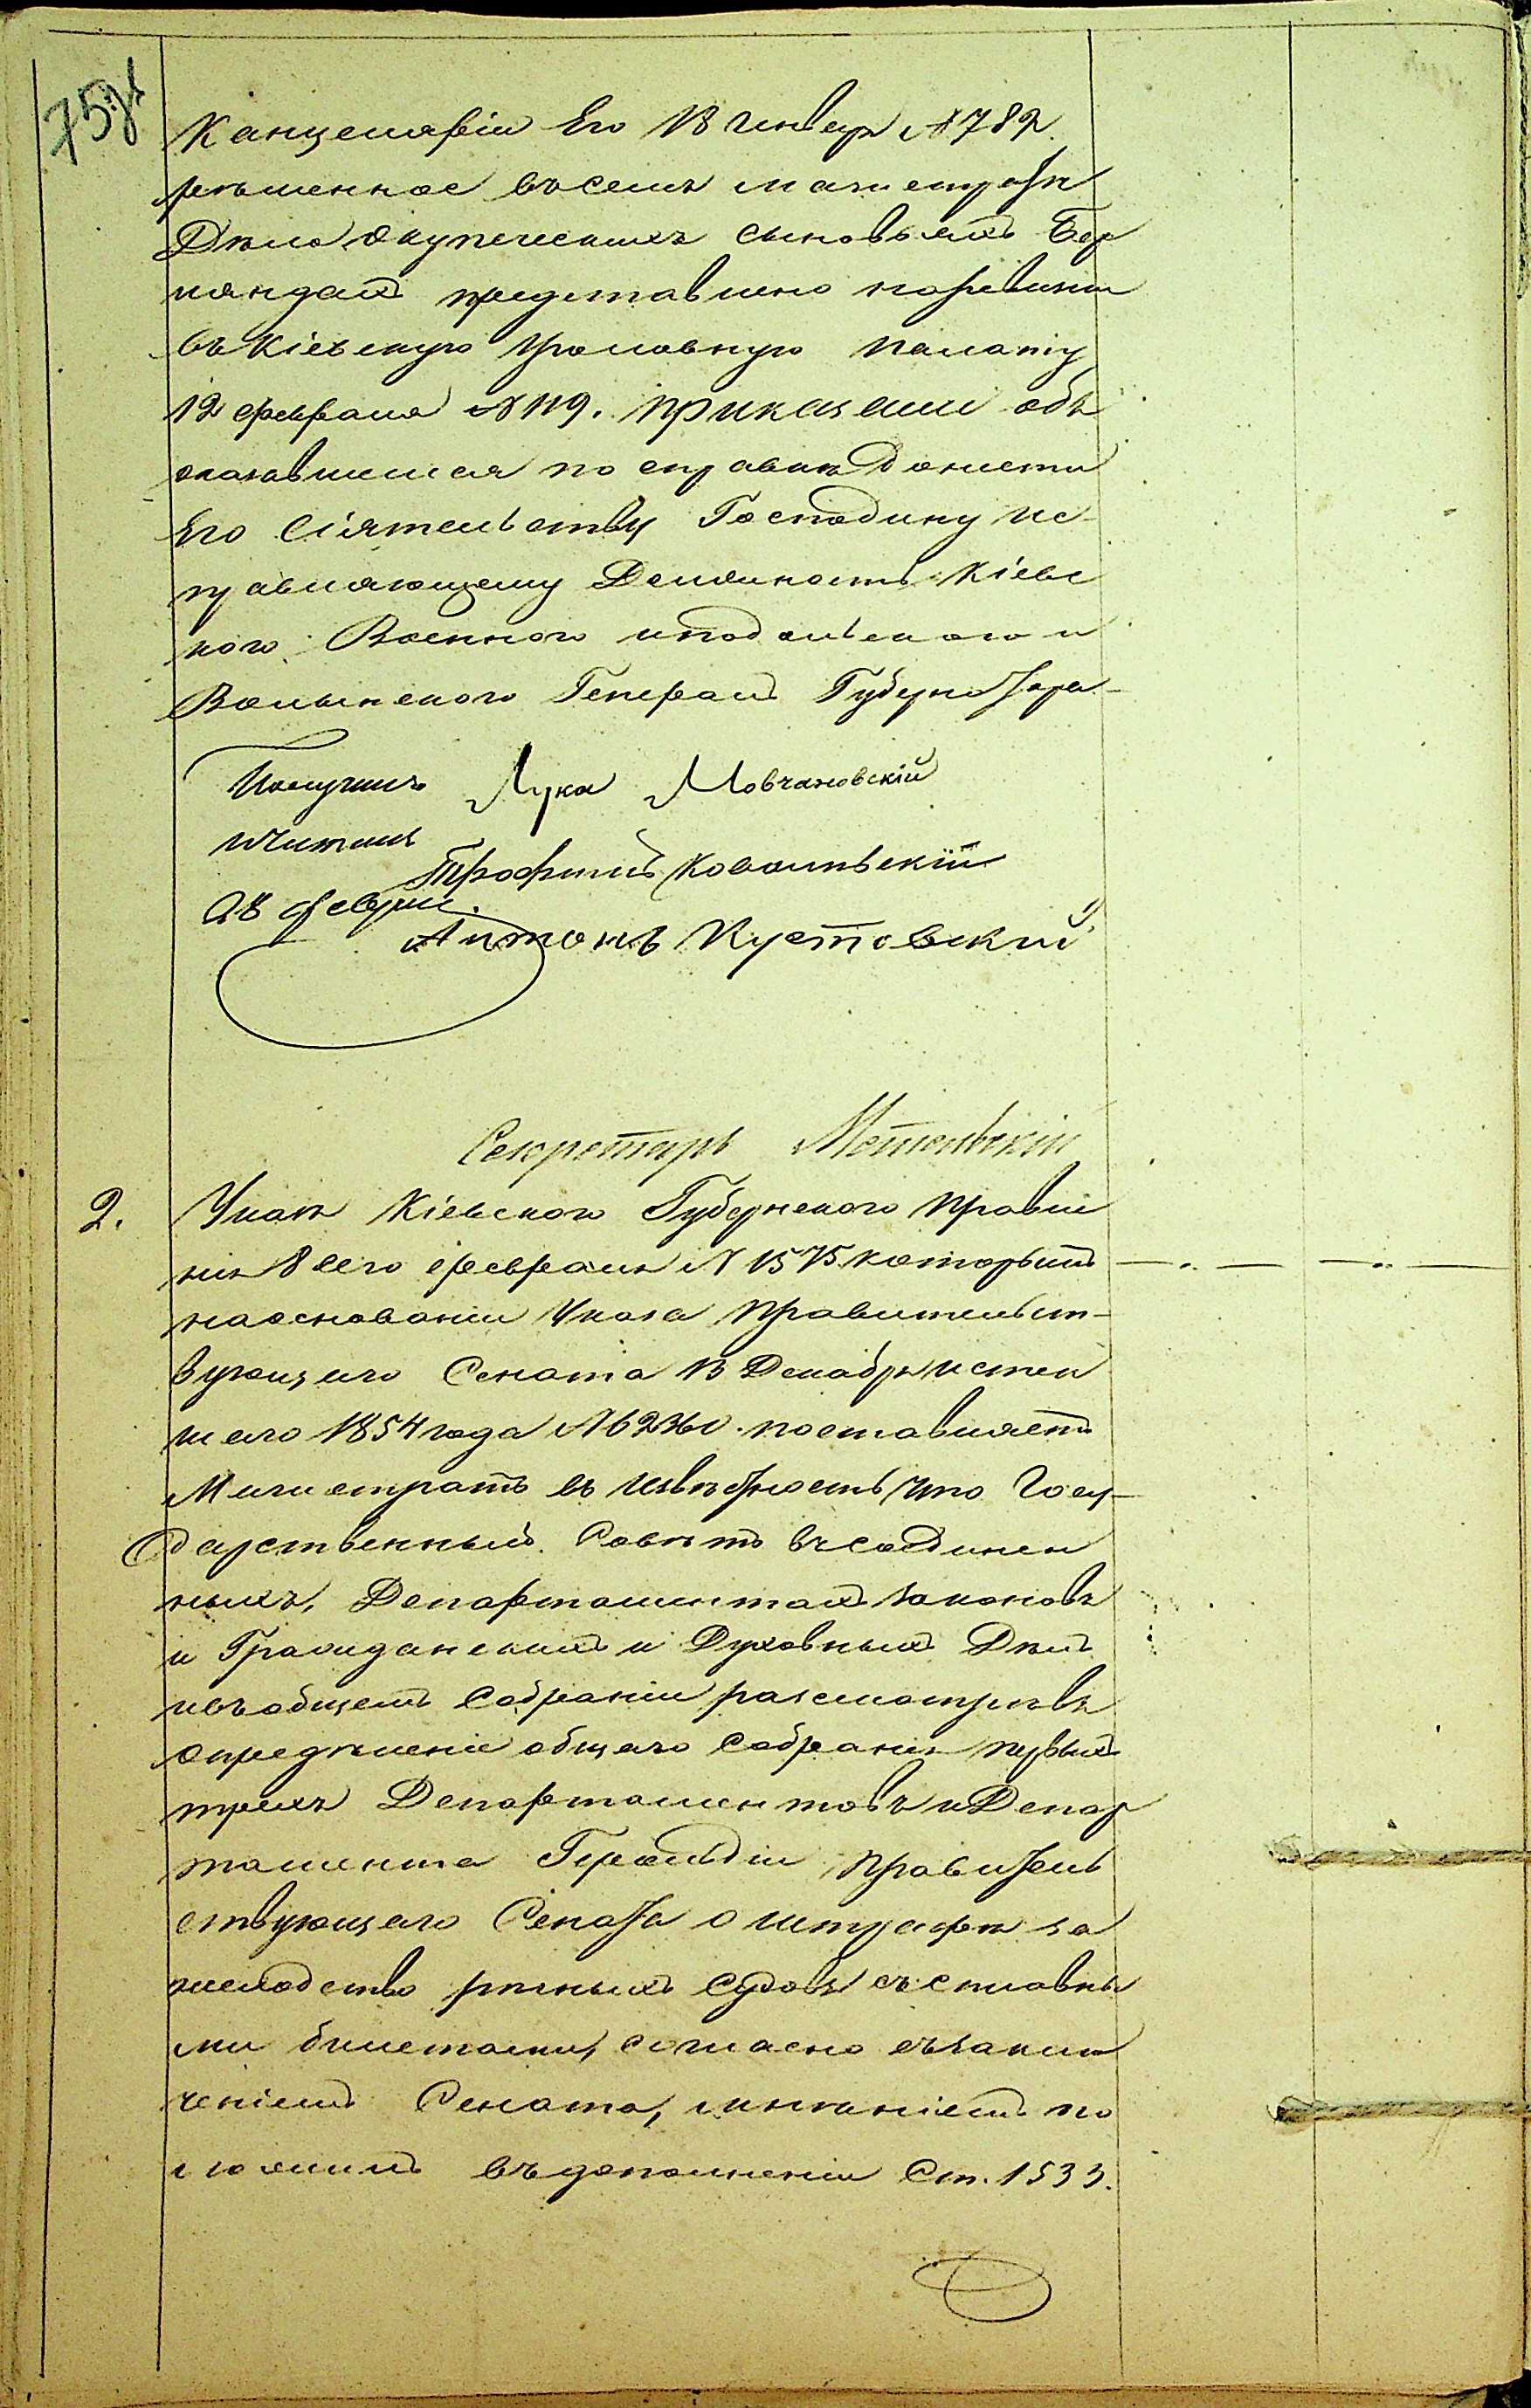 75
Канцелярiи Его 13 Января №782
рѣшенное въ семъ магистратѣ
Дѣло о купеческихъ сыновьяхъ Бер
ляндахъ представлено на ревизiю
въ Кiевскую Уголовную Палату
12 февраля №119. Приказали объ
оказавшемся по справкѣ донести
Его Сiятельству Господину Ис-
правляющему Должность Кiевс
кого Военного и Подольского и
Волынского Генералъ Губернатора
Лука Мовчановскiй
и читалъ
Трофимъ Ковалевскiй
28 февраля.
Антонъ Кустовскiй
Секретарь
2. Указъ Кiевского Губернского Правле
нiя 8 сего февраля №1575 которымъ
на основанiи Указа Правительст-
вующего Сената 13 Декабря истек
шего 1854 года №62360 поставляетъ
Магистратъ въ извѣстность что Госу-
дарственный Совѣтъ въ соединен
ныхъ Департаментахъ Законовъ
и Гражданскихъ и Духовныхъ Дѣлъ
и въ общемъ Собранiи разсмотрѣвъ
опредѣленiе общего Собранiя первыхъ
трехъ Департаментовъ и Депар
тамента Герольдiи Правитель
ствующего Сената о штрафѣ за
неходство рѣчныхъ судовъ съ сплавны
ми билетами, согласно съ заклю
ченiемъ Сената, мнѣнiемъ по
ложилъ въ дополненiи Ст. 1533.